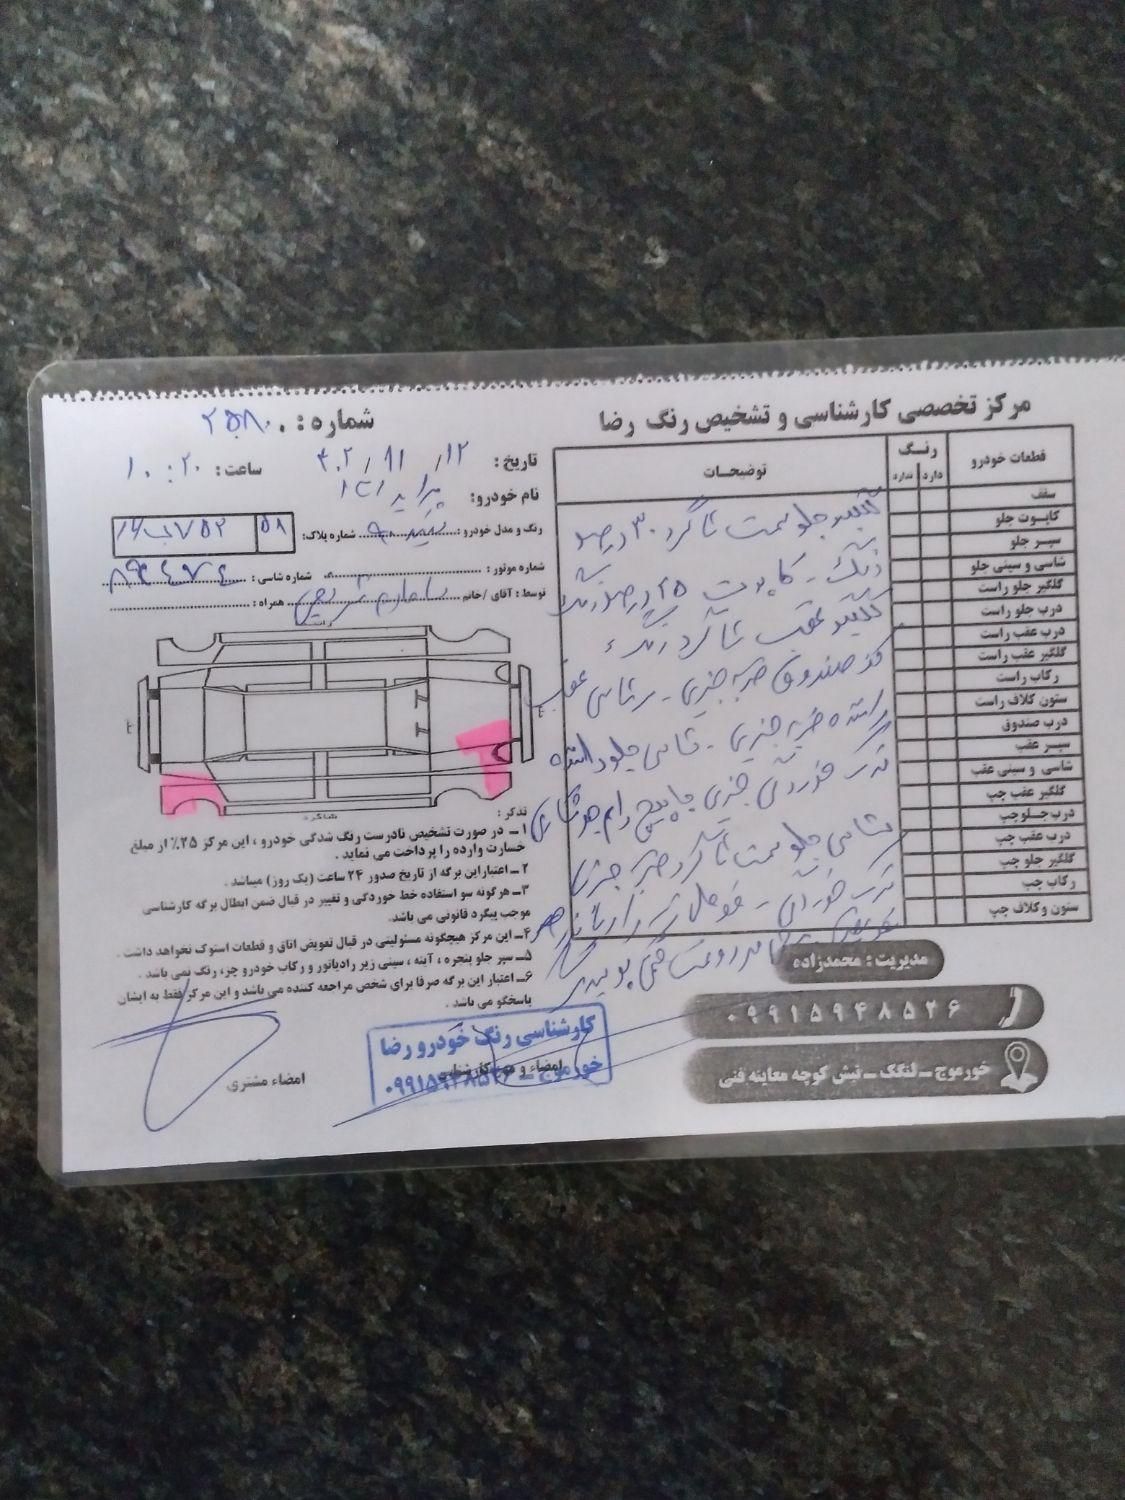 مرکز تخصصی کارشناسی و تشخیص رنگ رضا
شماره : ۲۵۸۰۰
تاریخ : ۱۲ / ۱۱ / ۴۰۲
ساعت : ۱۰:۲۰
نام خودرو : پراید ۱۳۱
رنگ و مدل خودرو : سفید ۹۰ شماره پلاک :
۵۸
شماره موتور :
شماره شاسی :
توسط : آقای / خانم همراه :
قطعات خودرو
رنگ
دارد
ندارد
توضیحات
سقف
کاپوت جلو
سپر جلو
شاسی و سینی جلو
گلگیر جلو راست
درب جلو راست
درب عقب راست
گلگیر عقب راست
رکاب راست
ستون کلاف راست
درب صندوق
سپر عقب
شاسی و سینی عقب
گلگیر عقب چپ
درب جلو چپ
درب عقب چپ
گلگیر جلو چپ
رکاب چپ
ستون و کلاف چپ
گلگیر جلو سمت شاگرد ۳۰ درصد
رنگ - کاپوت ۲۵ درصد رنگ
گلگیر عقب شاگرد رنگ
کف صندوق ضربه جزیی - شاسی عقب
راننده ضربه جزیی - شاسی جلو راننده
ترک خوردگی جزیی
شاسی جلو سمت شاگرد ضربه جزیی
ترک خوردگی
راست
شاگرد
تذکر :
۱ ـ در صورت تشخیص نادرست رنگ شدگی خودرو ، این مرکز ۲۵٪ از مبلغ
خسارت وارده را پرداخت می نماید .
۲ ـ اعتبار این برگه از تاریخ صدور ۲۴ ساعت (یک روز) میباشد .
۳ـ هرگونه سو استفاده خط خوردگی و تغییر در قبال ضمن ابطال برگه کارشناسی
موجب پیگرد قانونی می باشد.
۴ـ این مرکز هیچگونه مسئولیتی در قبال تعویض اتاق و قطعات استوک نخواهد داشت .
۵ـ سپر جلو پنجره ، آینه ، سینی زیر رادیاتور و رکاب خودرو جزء رنگ نمی باشد .
۶ـ اعتبار این برگه صرفا برای شخص مراجعه کننده می باشد و این مرکز فقط به ایشان
پاسخگو می باشد .
امضاء و مهر کارشناس
امضاء مشتری
کارشناسی رنگ خودرو رضا
خورموج ـ ۰۹۹۱۵۹۴۸۵۲۶
مدیریت : محمدزاده
۰۹۹۱۵۹۴۸۵۲۶
خورموج ـ لنگک ـ نبش کوچه معاینه فنی